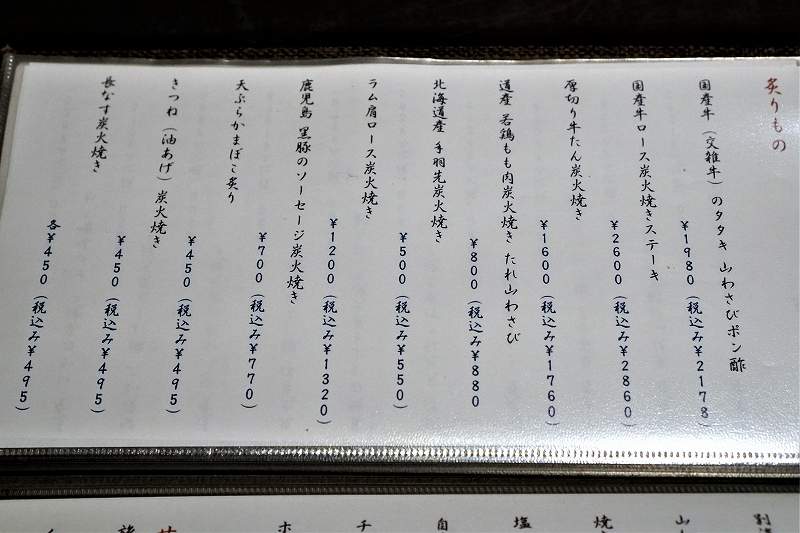 炙りもの
国産牛（交雑牛）のタタキ 山わさびポン酢
¥1980（税込み¥2178）
国産牛ロース炭火焼きステーキ
¥2600（税込み¥2860）
厚切り牛たん炭火焼き
¥1600（税込み¥1760）
道産 若鶏もも肉炭火焼き たれ山わさび
¥800（税込み¥880
北海道産 手羽先炭火焼き
¥500（税込み¥550）
ラム肩ロース炭火焼き
¥1200（税込み¥1320）
鹿児島 黒豚のソーセージ炭火焼き
¥700（税込み¥770）
天ぷらかまぼこ炙り
¥450（税込み¥495）
きつね（油あげ）炭火焼き
¥450（税込み¥495）
長なす炭火焼き
各¥450（税込み¥495）
別
山
焼
塩
自
チ
ホ